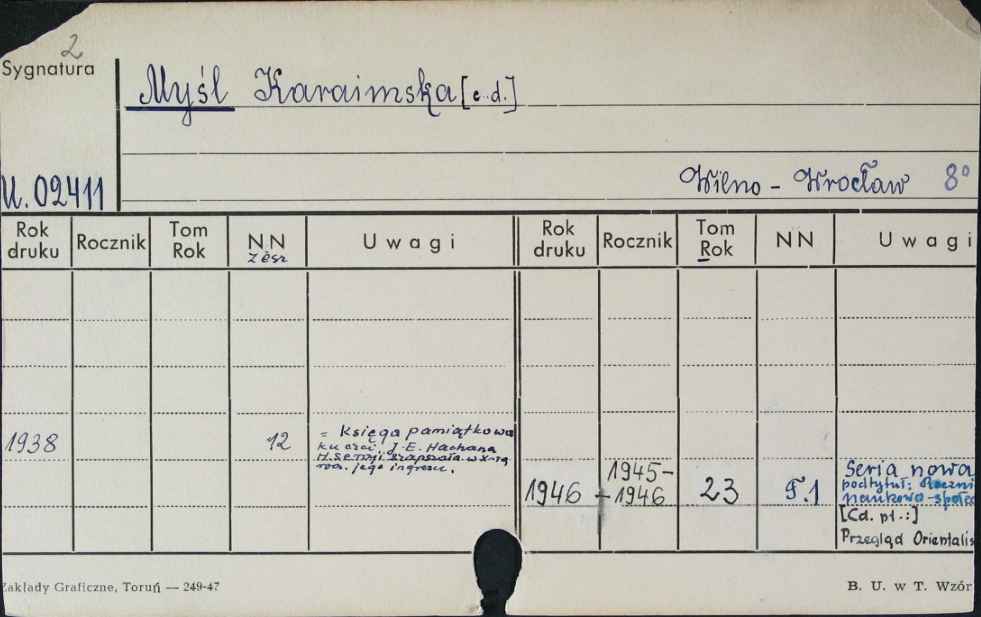 2
Sygnatura
Myśl Karaimska [c.d.]
U.02411
Wilno - Wrocław 8°
Rok druku Rocznik Tom Rok NN zesz Uwagi Rok druku Rocznik Tom Rok NN Uwagi
1938 12 = Księga pamiątkowa
ku czci J.E. Hachana
H. Seraji Szapszała w X-tą
rocz. jego ingresu.
1946 1945-
-1946 23 T.1 Seria nowa
podtytuł: Roczni
naukowo-społec
[Cd. pt.:]
Przegląd Orientalis
Zakłady Graficzne, Toruń — 249-47
B. U. w T. Wzór